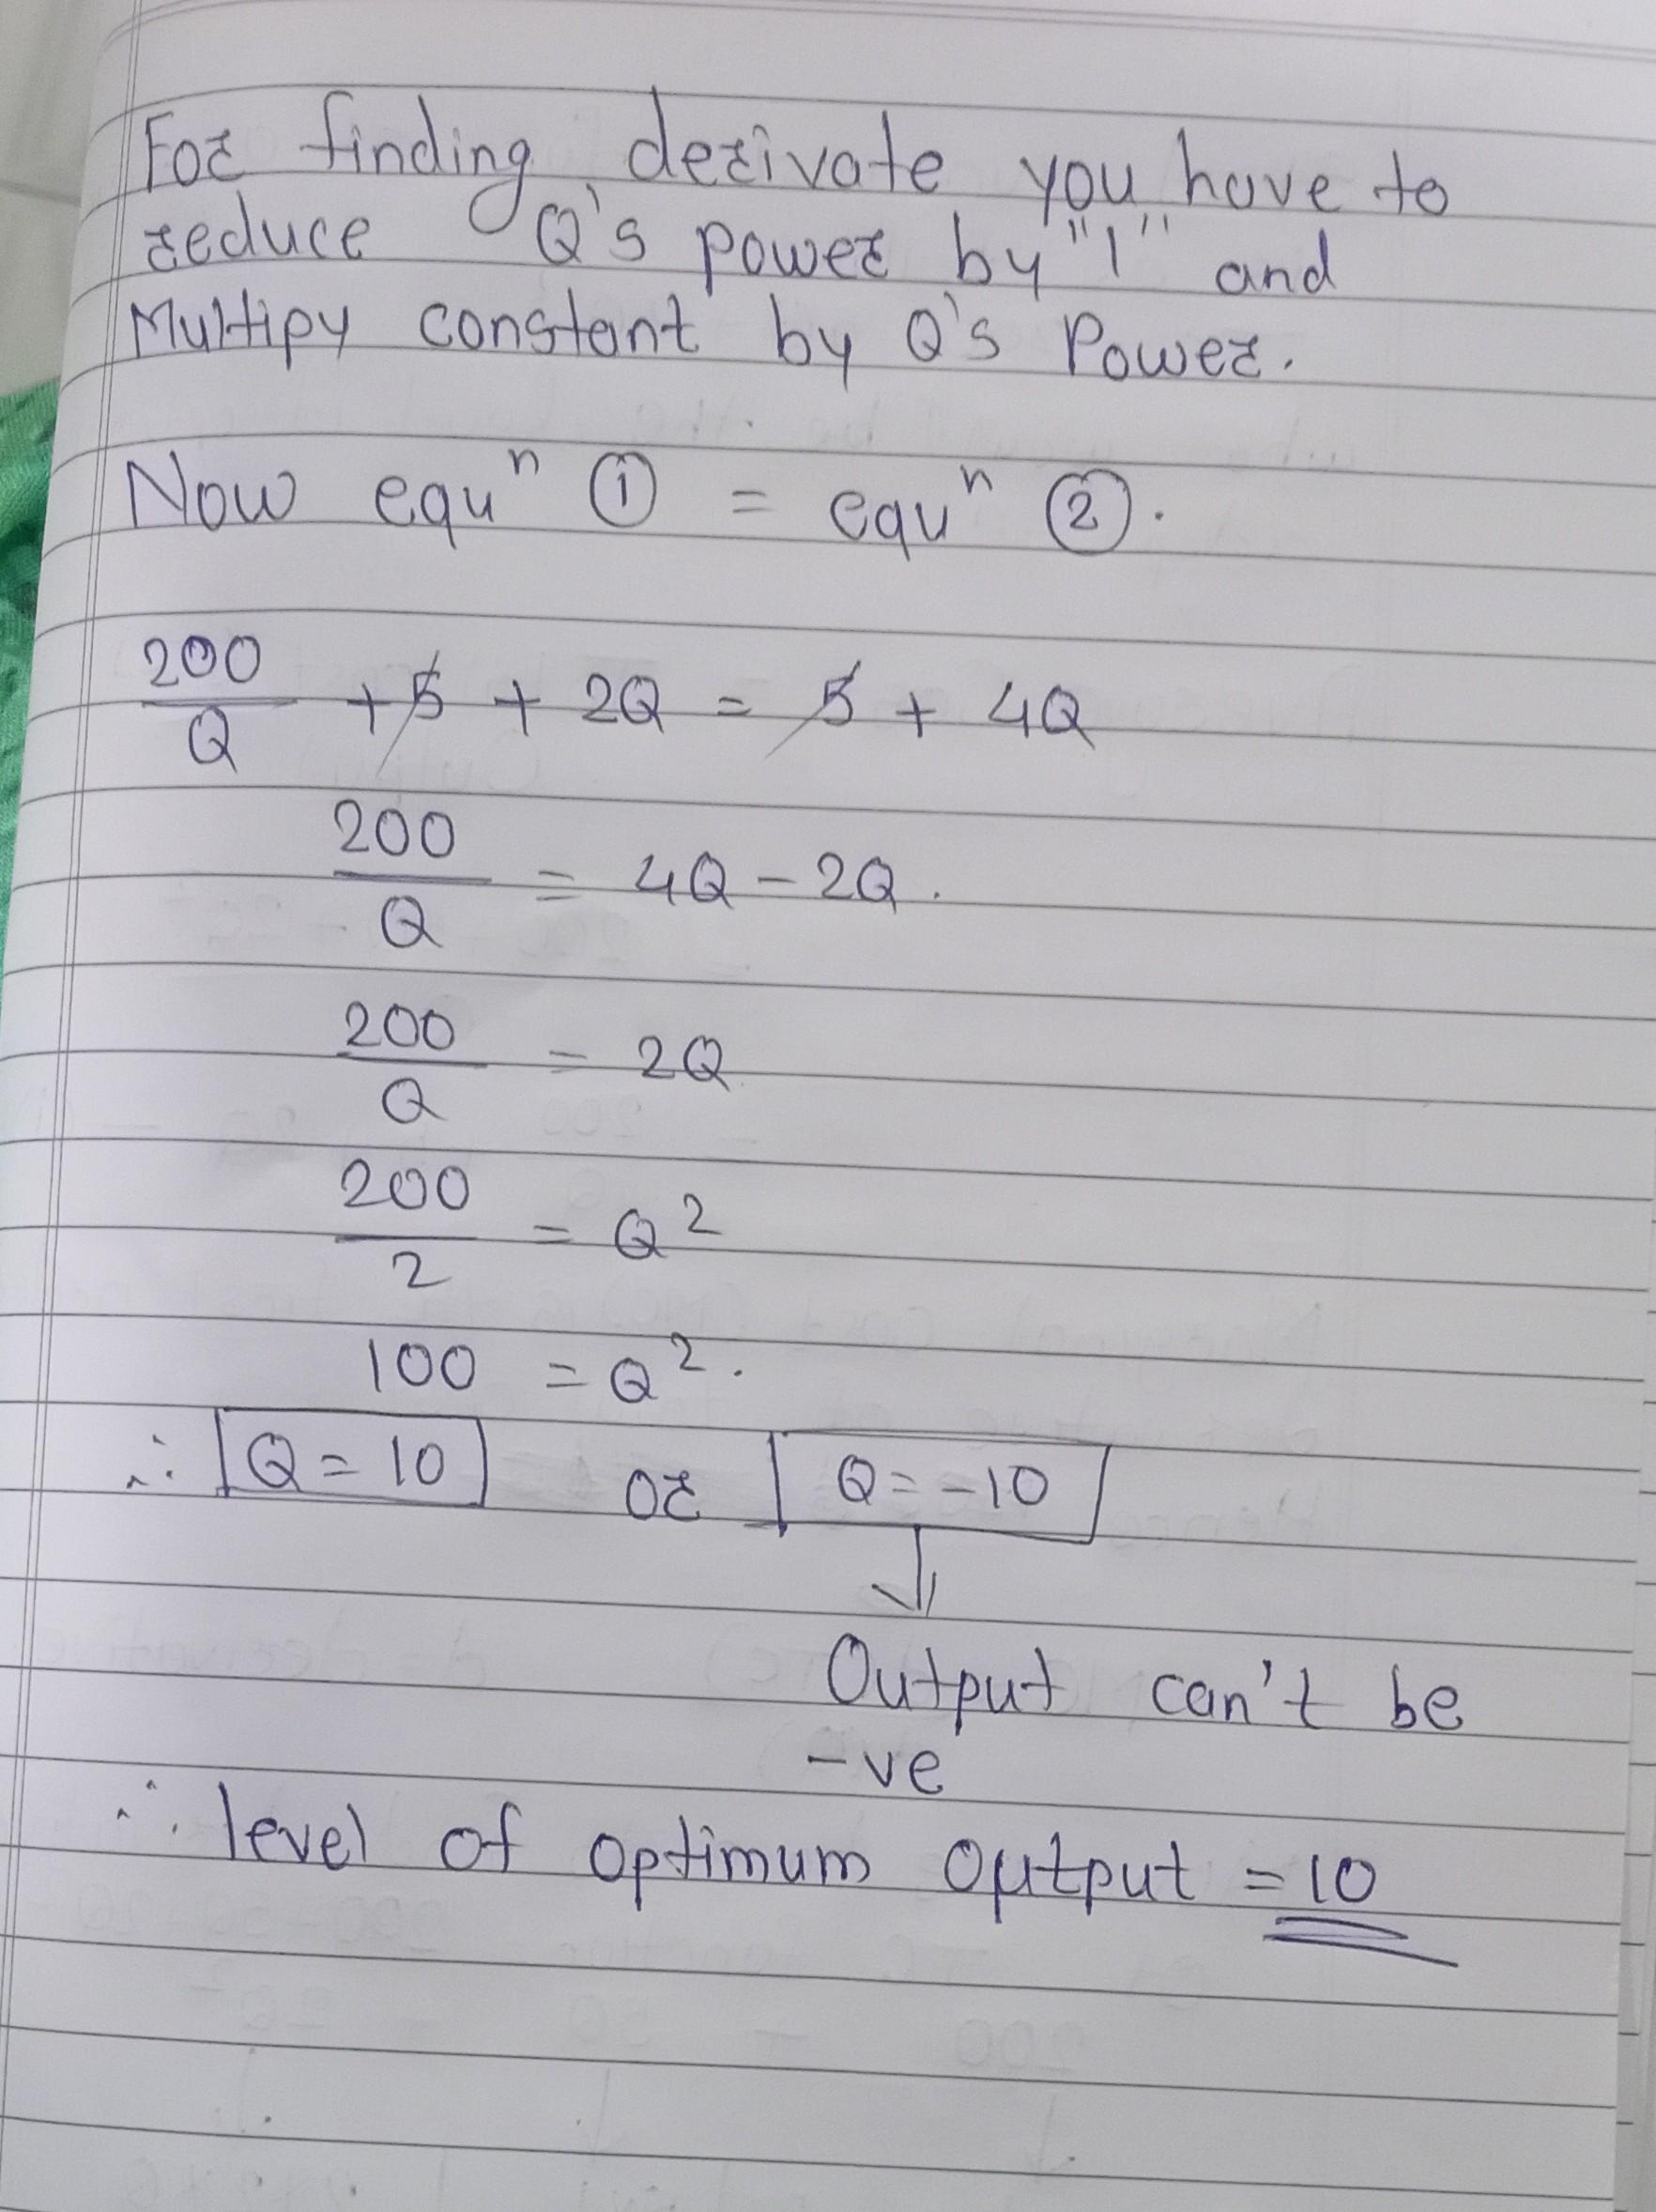 For finding derivate you have to
reduce Q's power by "1" and
Multipy constant by Q's Power.
Now equⁿ ① = equⁿ ②.
200/Q + 5 + 2Q = 5 + 4Q
200/Q = 4Q - 2Q.
200/Q = 2Q
200/2 = Q²
100 = Q².
∴ Q = 10 or Q = -10
Output can't be
-ve
∴ level of optimum output = 10